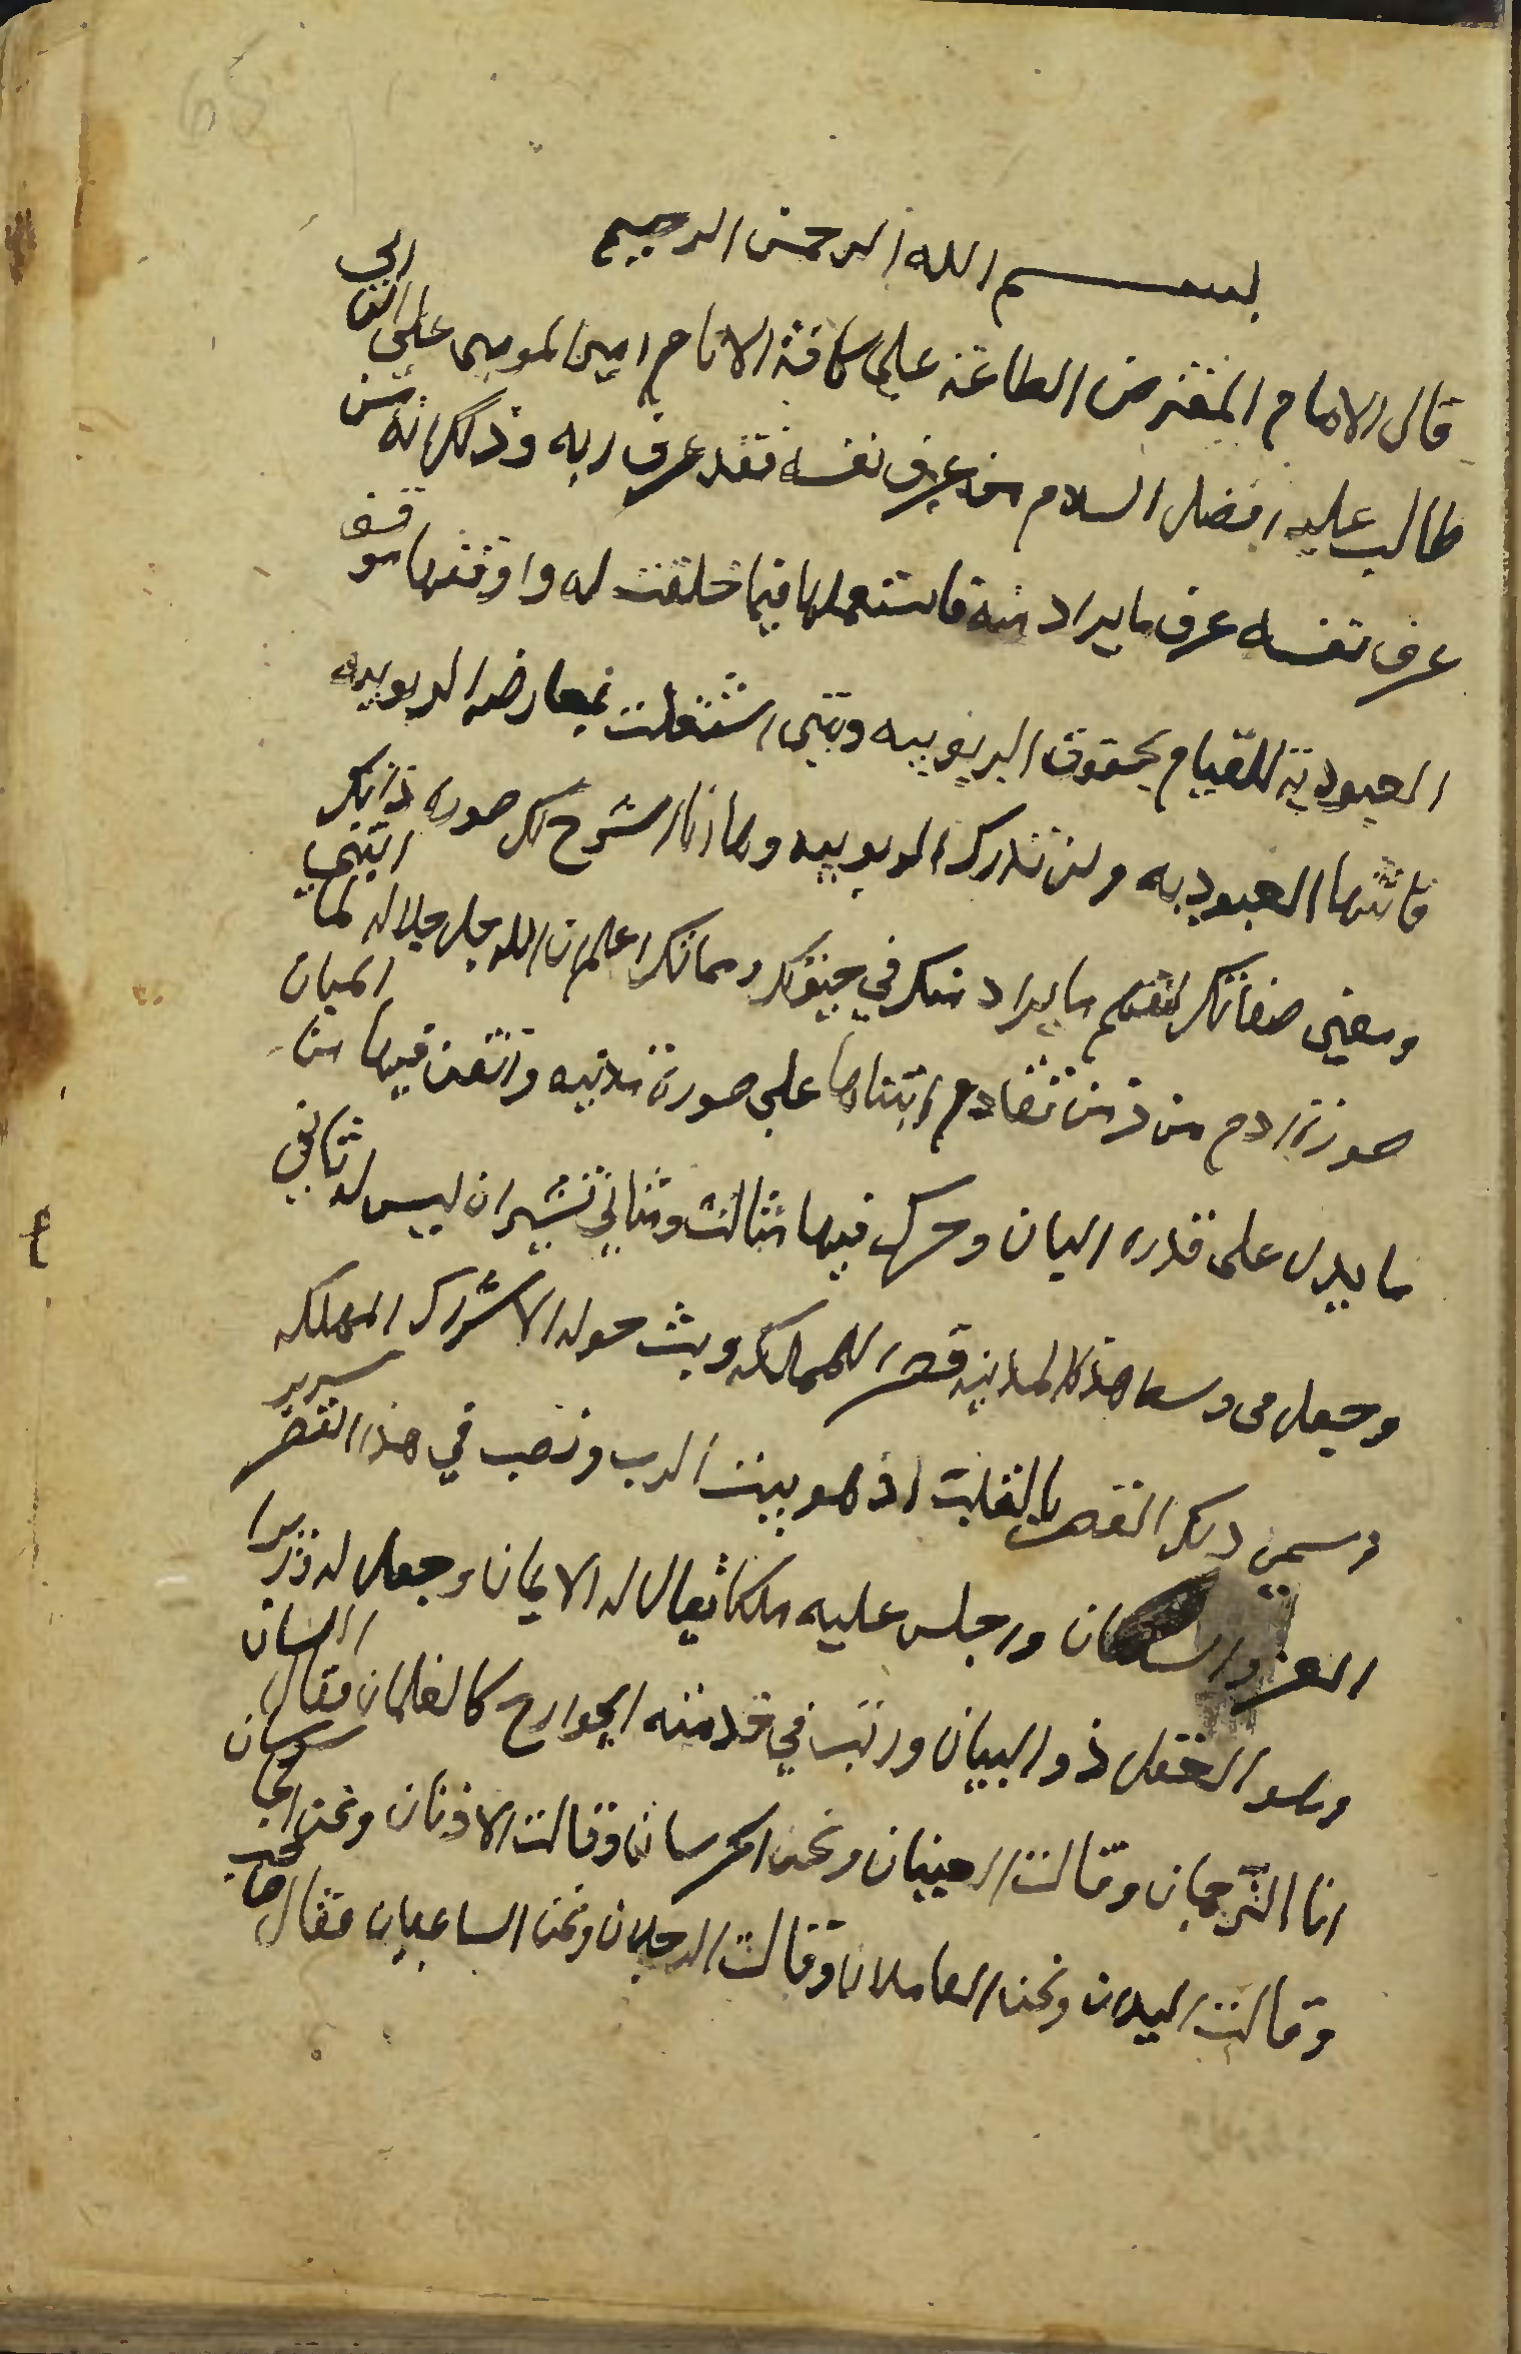 65
بسم الله الرحمن الرحيم
قال الامام المفترض الطاعة علي كافة الانام امير المومنين علي ابن ابي
طالب عليه افضل السلام من عرف نفسه فقد عرف ربه وذلك انه من
عرف نفسه عرف ما يراد منه فاستعملها فيما خلقت له واوقفها موقف
العبودية للقيام بحقوق الربوبيه ومتى اشتغلت بمعارضه الربوبيه
فاتتها العبوديه ولن تدرك الربوبيه وها انا اشرح لك صورة ذاتك
ومعنى صفاتك لتفهم ما يراد منك في حيوتك ومماتك اعلم ان الله جل جلاله لما ابتني
صورة ادم من تقادم ابتناها علي صورة مدنيه واتقن فيها من المبان
ما يدل على قدره البان وحرك فيها مثالث ومثاني تشير ان ليس له ثاني
وجعل في وسط هذه المدنيه قصر للمملكه وبث حوله الاشراك المهلكه
وسمي ذلك القصر بالقلب اذ هو بيت الرب ونصب في هذا القصر سرير
العز والسلطان واجلس عليه ملكا يقال له الايمان وجعل له وزيرا
وهو العقل ذو البيان ورتب في خدمته الجوارح كالغلمان فقال اللسان
انا الترجمان وقالت العينان ونحن الحرسان وقالت الاذنان ونحن الجاسوسان
وقالت اليدان ونحن العاملان وقالت الرجلان ونحن الساعيان فقال